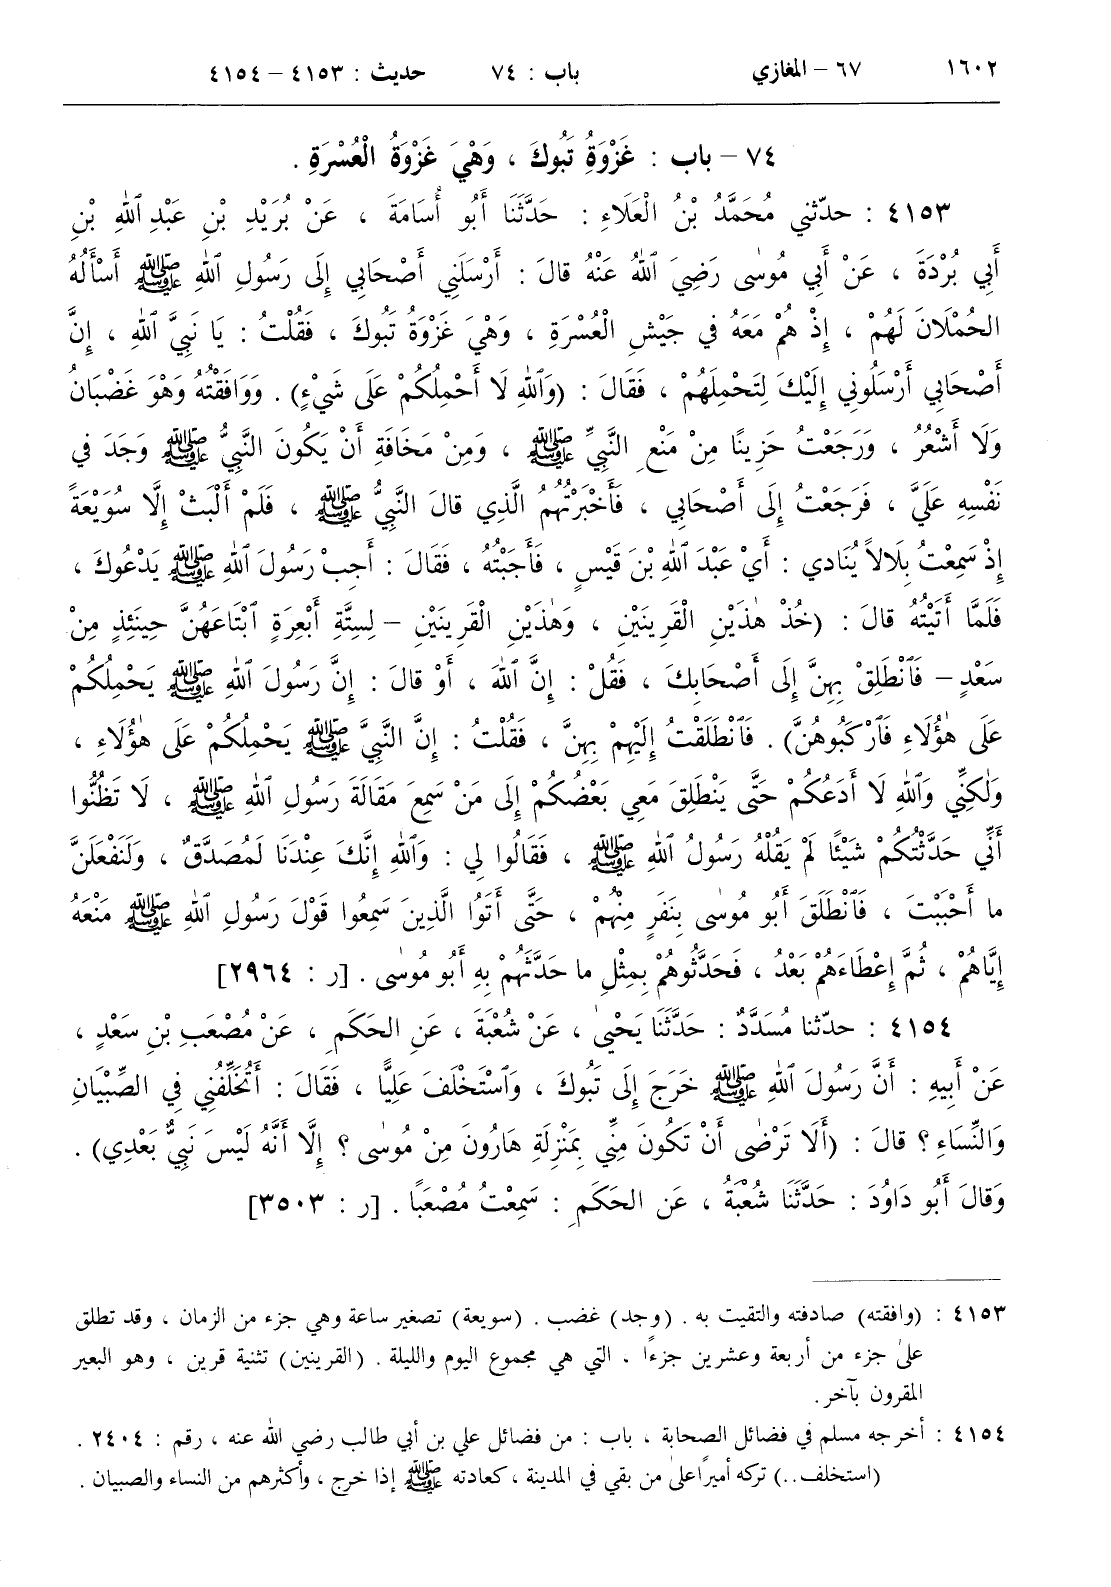 ١٦٠٢ ٦٧ – المغازي باب : ٧٤ حديث : ٤١٥٣ – ٤١٥٤
٧٤ – باب : غَزْوَةُ تَبُوكَ ، وَهْيَ غَزْوَةُ الْعُسْرَةِ .
٤١٥٣ : حدّثني مُحَمَّدُ بْنُ الْعَلَاءِ : حَدَّثَنَا أَبُو أُسَامَةَ ، عَنْ بُرَيْدِ بْنِ عَبْدِ ٱللهِ بْنِ
أَبِي بُرْدَةَ ، عَنْ أَبِي مُوسٰى رَضِيَ ٱللهُ عَنْهُ قالَ : أَرْسَلَنِي أَصْحَابِي إِلَى رَسُولِ ٱللهِ ﷺ أَسْأَلُهُ
الحُمْلَانَ لَهُمْ ، إِذْ هُمْ مَعَهُ في جَيْشِ الْعُسْرَةِ ، وَهْيَ غَزْوَةُ تَبُوكَ ، فَقُلْتُ : يَا نَبِيَّ ٱللهِ ، إِنَّ
أَصْحَابِي أَرْسَلُونِي إِلَيْكَ لِتَحْمِلَهُمْ ، فَقَالَ : (وَٱللهِ لَا أَحْمِلُكُمْ عَلَى شَيْءٍ) . وَوَافَقْتُهُ وَهْوَ غَضْبَانُ
وَلَا أَشْعُرُ ، وَرَجَعْتُ حَزِينًا مِنْ مَنْعِ النَّبِيِّ ﷺ ، وَمِنْ مَخَافَةِ أَنْ يَكُونَ النَّبِيُّ ﷺ وَجَدَ في
نَفْسِهِ عَلَيَّ ، فَرَجَعْتُ إِلَى أَصْحَابِي ، فَأَخْبَرْتُهُمُ الَّذِي قالَ النَّبِيُّ ﷺ ، فَلَمْ أَلْبَثْ إِلَّا سُوَيْعَةً
إِذْ سَمِعْتُ بِلَالاً يُنَادِي : أَيْ عَبْدَ ٱللهِ بْنَ قَيْسٍ ، فَأَجَبْتُهُ ، فَقَالَ : أَجِبْ رَسُولَ ٱللهِ ﷺ يَدْعُوكَ ،
فَلَمَّا أَتَيْتُهُ قالَ : (خُذْ هٰذَيْنِ الْقَرِينَيْنِ ، وَهٰذَيْنِ الْقَرِينَيْنِ – لِسِتَّةِ أَبْعِرَةٍ ٱبْتَاعَهُنَّ حِينَئِذٍ مِنْ
سَعْدٍ – فَٱنْطَلِقْ بِهِنَّ إِلَى أَصْحَابِكَ ، فَقُلْ : إِنَّ ٱللهَ ، أَوْ قالَ : إِنَّ رَسُولَ ٱللهِ ﷺ يَحْمِلُكُمْ
عَلَى هٰؤُلَاءِ فَٱرْكَبُوهُنَّ) . فَٱنْطَلَقْتُ إِلَيْهِمْ بِهِنَّ ، فَقُلْتُ : إِنَّ النَّبِيَّ ﷺ يَحْمِلُكُمْ عَلَى هٰؤُلَاءِ ،
وَلٰكِنِّي وَٱللهِ لَا أَدَعُكُمْ حَتَّى يَنْطَلِقَ مَعِي بَعْضُكُمْ إِلَى مَنْ سَمِعَ مَقَالَةَ رَسُولِ ٱللهِ ﷺ ، لَا تَظُنُّوا
أَنِّي حَدَّثْتُكُمْ شَيْئًا لَمْ يَقُلْهُ رَسُولُ ٱللهِ ﷺ ، فَقَالُوا لِي : وَٱللهِ إِنَّكَ عِنْدَنَا لَمُصَدَّقٌ ، وَلَنَفْعَلَنَّ
ما أَحْبَبْتَ ، فَٱنْطَلَقَ أَبُو مُوسٰى بِنَفَرٍ مِنْهُمْ ، حَتَّى أَتَوُا الَّذِينَ سَمِعُوا قَوْلَ رَسُولِ ٱللهِ ﷺ مَنْعَهُ
إِيَّاهُمْ ، ثُمَّ إِعْطَاءَهُمْ بَعْدُ ، فَحَدَّثُوهُمْ بِمِثْلِ ما حَدَّثَهُمْ بِهِ أَبُو مُوسٰى . [ر : ٢٩٦٤]
٤١٥٤ : حدّثنا مُسَدَّدٌ : حَدَّثَنَا يَحْيىٰ ، عَنْ شُعْبَةَ ، عَنِ الحَكَمِ ، عَنْ مُصْعَبِ بْنِ سَعْدٍ ،
عَنْ أَبِيهِ : أَنَّ رَسُولَ ٱللهِ ﷺ خَرَجَ إِلَى تَبُوكَ ، وَٱسْتَخْلَفَ عَلِيًّا ، فَقَالَ : أَتُخَلِّفُنِي في الصِّبْيَانِ
وَالنِّسَاءِ ؟ قالَ : (أَلَا تَرْضٰى أَنْ تَكُونَ مِنِّي بِمَنْزِلَةِ هَارُونَ مِنْ مُوسٰى ؟ إِلَّا أَنَّهُ لَيْسَ نَبِيٌّ بَعْدِي) .
وَقالَ أَبُو دَاوُدَ : حَدَّثَنَا شُعْبَةُ ، عَنِ الحَكَمِ : سَمِعْتُ مُصْعَبًا . [ر : ٣٥٠٣]
٤١٥٣ : (وافقته) صادفته والتقيت به . (وجد) غضب . (سويعة) تصغير ساعة وهي جزء من الزمان ، وقد تطلق
علىٰ جزء من أربعة وعشرين جزءًا ، التي هي مجموع اليوم والليلة . (القرينين) تثنية قرين ، وهو البعير
المقرون بآخر .
٤١٥٤ : أخرجه مسلم في فضائل الصحابة ، باب : من فضائل علي بن أبي طالب رضي الله عنه ، رقم : ٢٤٠٤ .
(استخلف..) تركه أميرًا علىٰ من بقي في المدينة ، كعادته ﷺ إذا خرج ، وأكثرهم من النساء والصبيان .